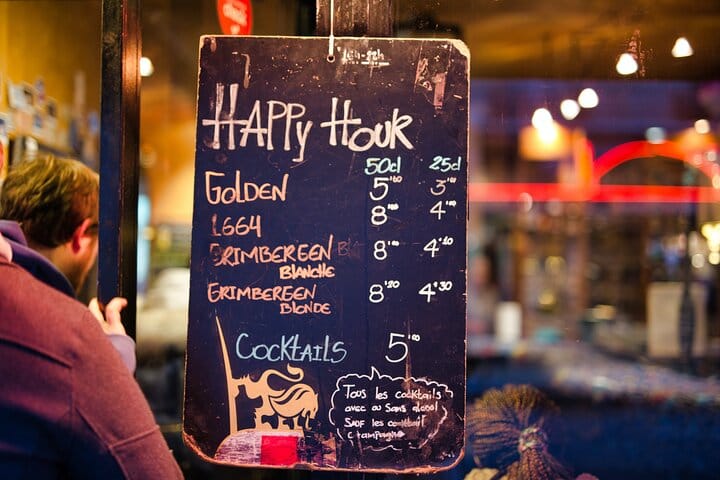 HAPPY HOUR
50cl 25cl
GOLDEN 5'00 3'00
1664 8'00 4'00
GRIMBEREEN 8'00 4'10
BLANCHE
GRIMBEREEN 8'20 4'30
BLONDE
COCKTAILS 5'00
Tous les cocktails
avec ou Sans alcool
SAUF les cocktail
champagne